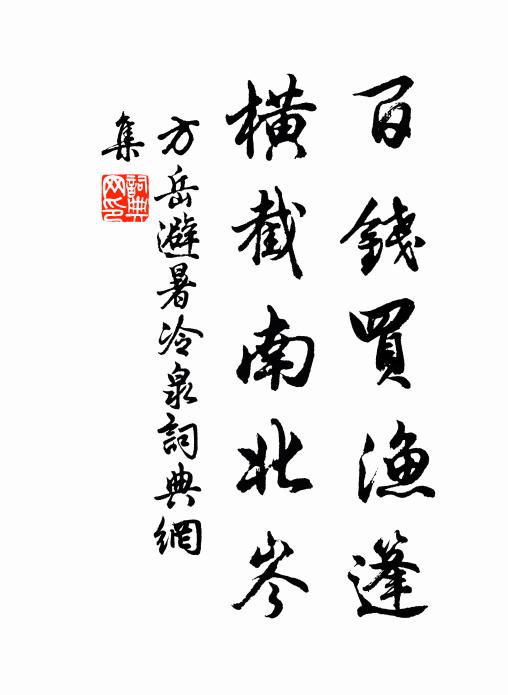 百錢買漁篷
橫截南北岑
方岳避暑冷泉詞典網
集
詞典網印